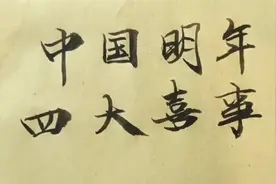 中国明年
四大喜事